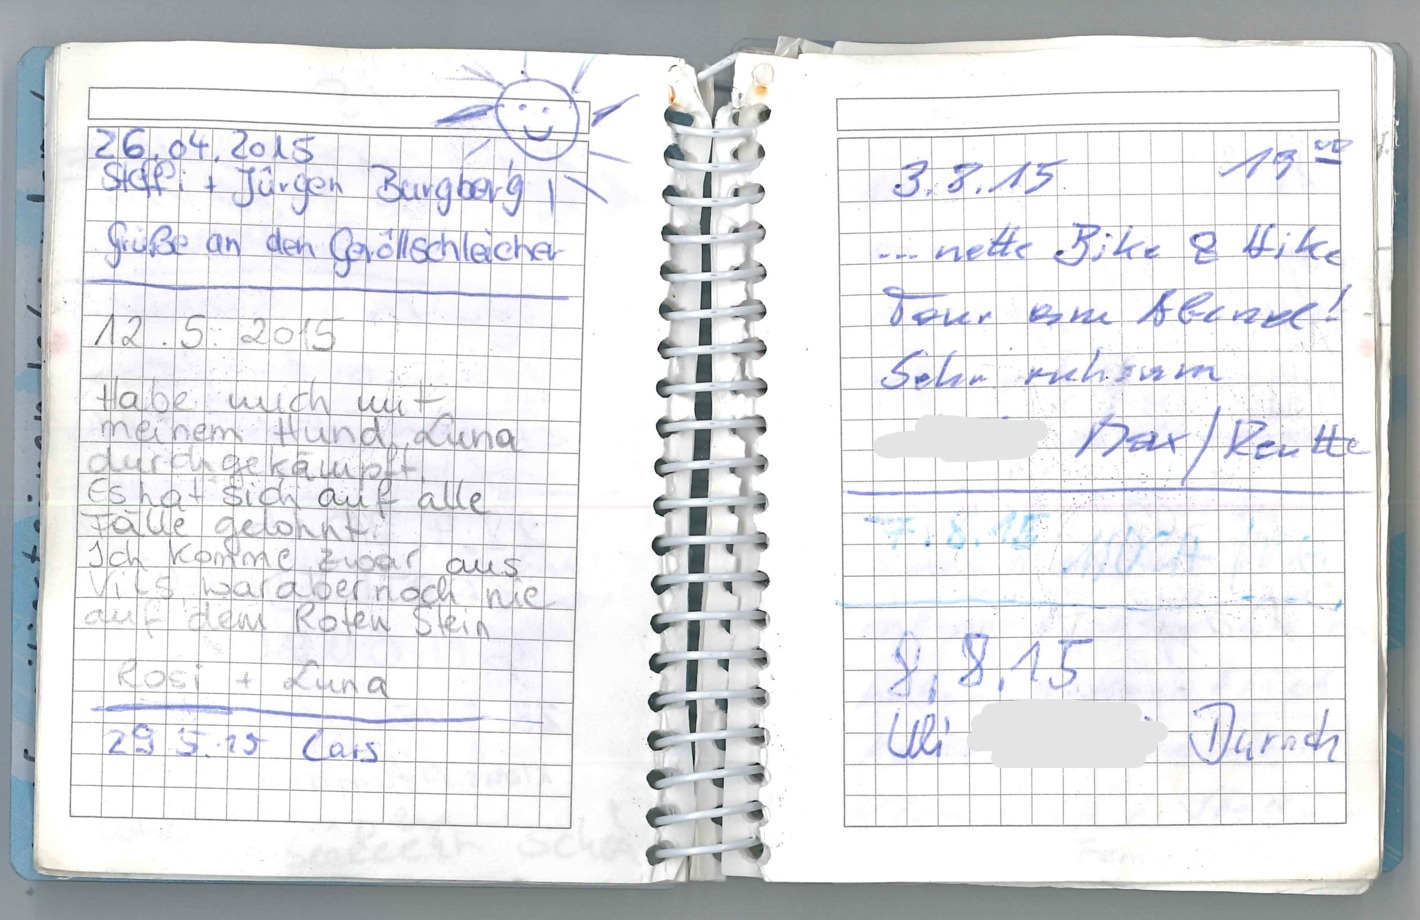 26.04.2015
Steffi + Jürgen Burgberg
Grüße an den Geröllschleicher
12.5.2015
Habe mich mit
meinem Hund Luna
durchgekämpft.
Es hat sich auf alle
Fälle gelohnt.
Ich komme zwar aus
Vils war aber noch nie
auf dem Roten Stein
Rosi + Luna
29.5.15 Lars
3.8.15 19⁰⁰
... nette Bike & Hike
Tour am Abend!
Sehr ruhsam
Max / Reutte
7.8.15
8.8.15
Uli Durach